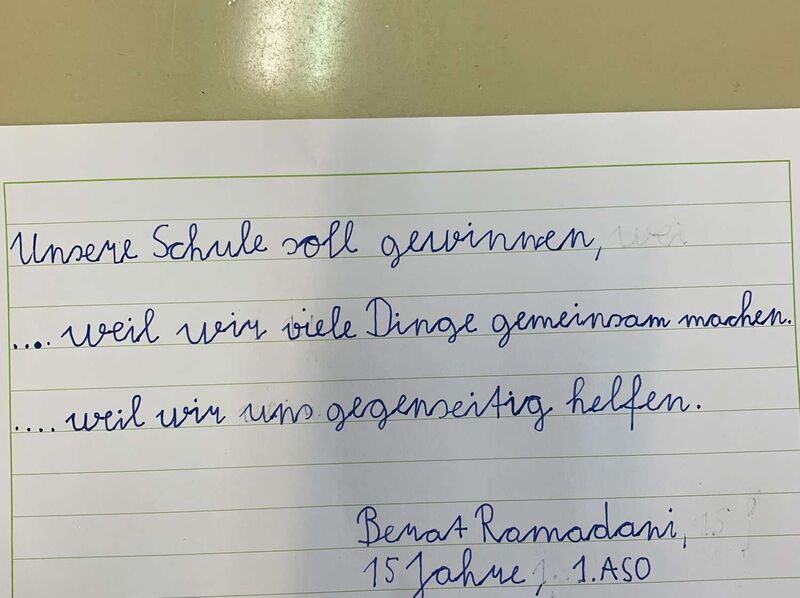 Unsere Schule soll gewinnen,
.... weil wir viele Dinge gemeinsam machen.
.... weil wir uns gegenseitig helfen.
Berat Ramadani,
15 Jahre, 1.ASO